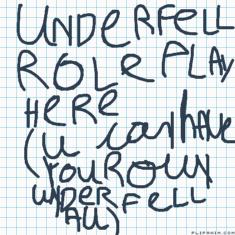 UNDERFELL
ROLE PLAY
HERE
(u can HAVE
YOUR OUN
UNDERFELL
AU)
FLIPANIM.COM